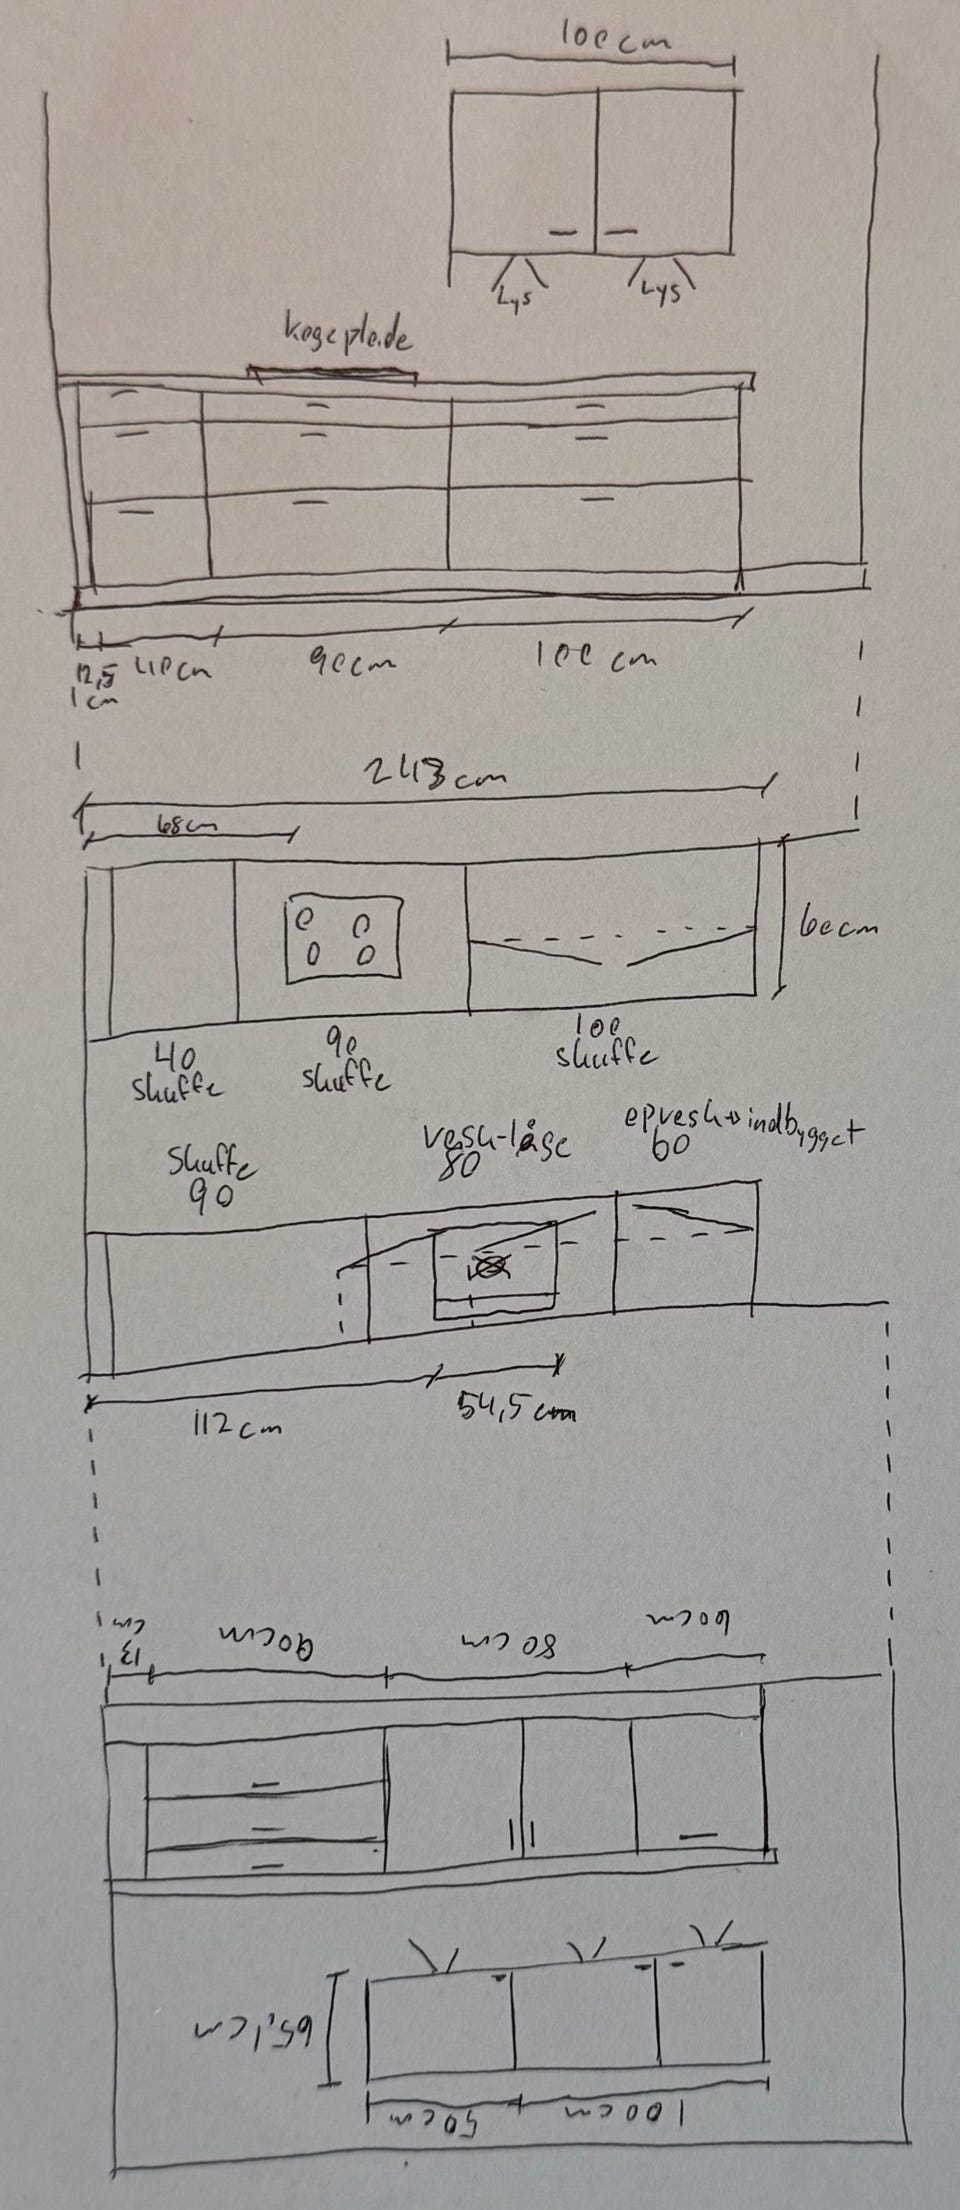 100cm
Lys Lys
kogeplade
12,5 40cm 90cm 100cm
1cm
243cm
68cm
60cm
40
skuffe
90
skuffe
100
skuffe
skuffe
90
vask-låge
80
opvask indbygget
60
112cm 54,5cm
13 cm 90cm 80cm 60cm
65,1cm
50cm 100cm